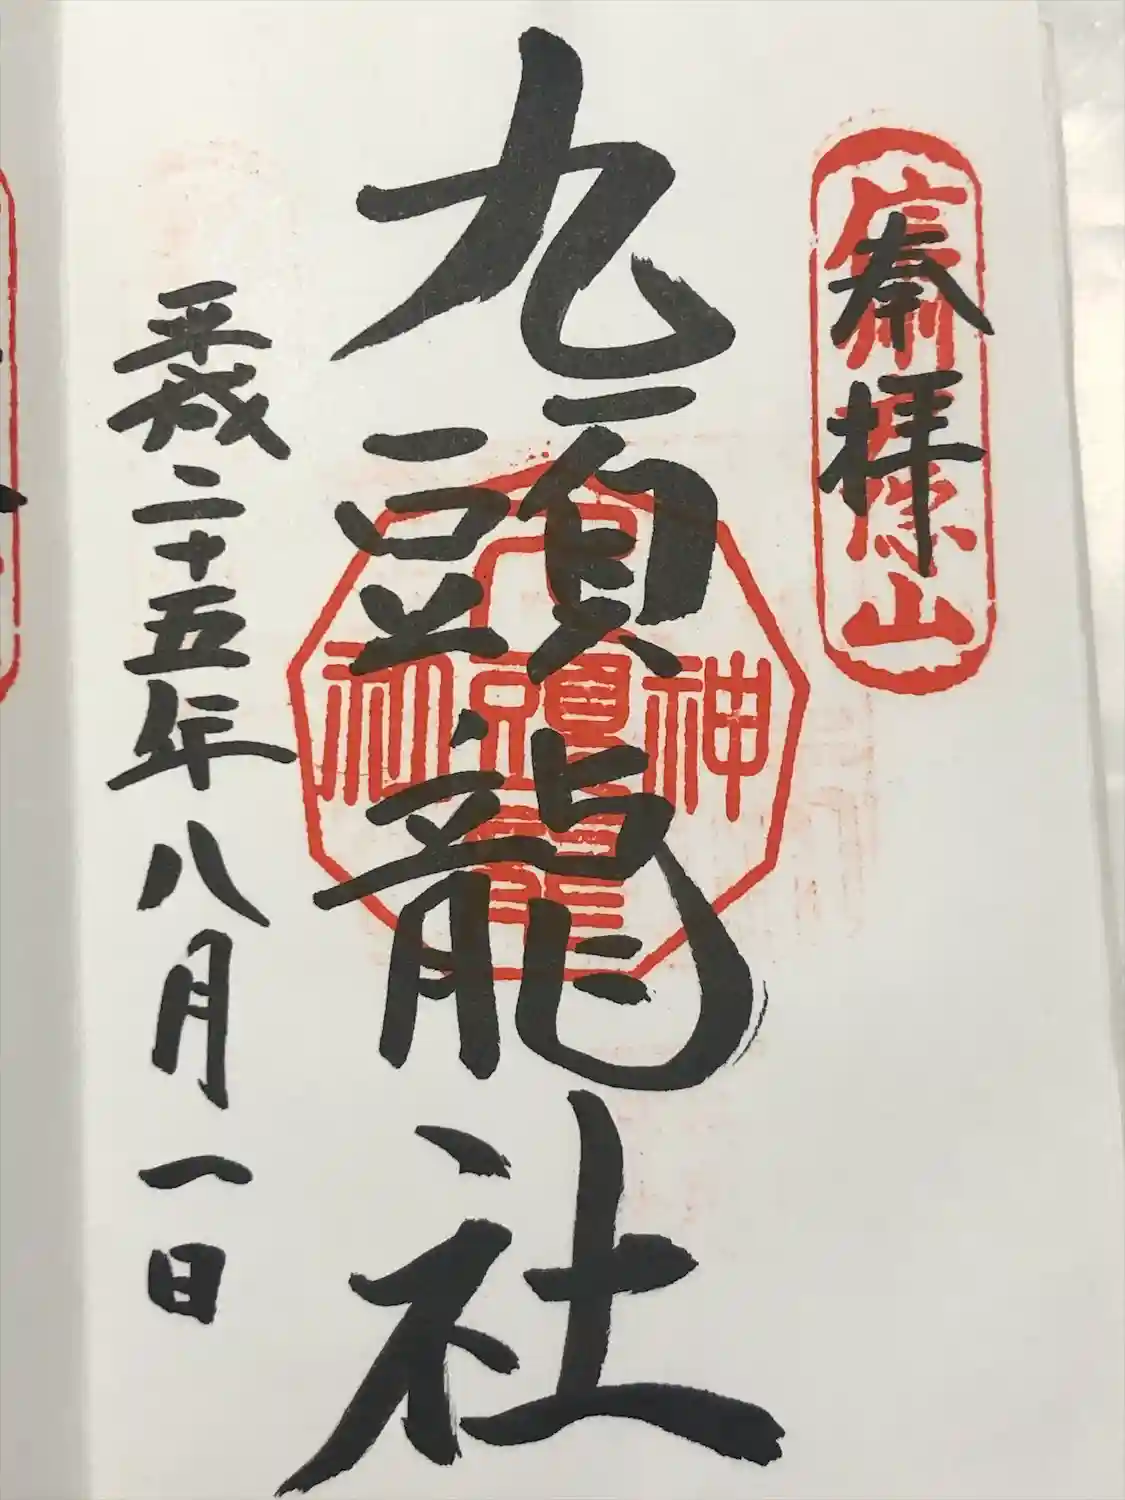 奉拝
信州戸隠山
九頭龍社
九頭龍神社
平成二十五年八月一日